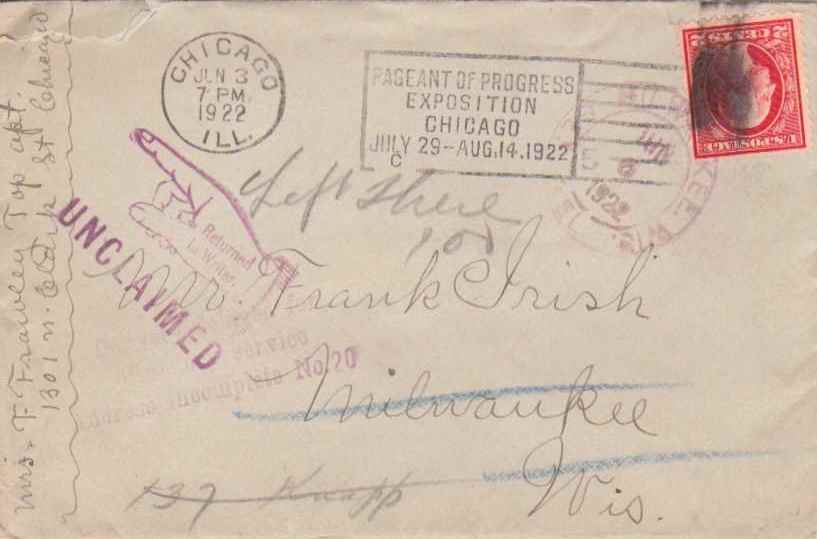 Mrs. F Frawley Top apt.
1301 N. Clark St Chicago
CHICAGO
JUN 3
7 PM
1922
ILL.
PAGEANT OF PROGRESS
EXPOSITION
CHICAGO
JULY 29-AUG.14.1922
C
1922
Left there
Returned
to Writer
UNCLAIMED
Mr. Frank Irish
Service
Address Incomplete No.20
Milwaukee
137 Knapp
Wis.